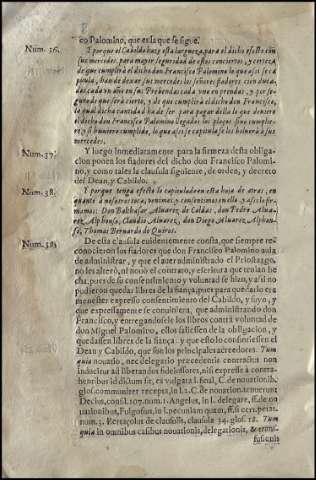 co Palomino, que es la que se sigue.
Num. 36.
Y porque el Cabildo haze esta largueza, para el dicho efecto con
sus mercedes, para mayor seguridad de estos conciertos, y certeza
de que cumplirà el dicho don Francisco Palomino lo que assi se ca
pitula, han de dexar sus mercedes los señores fiadores cien duca
dos cada vno en sus Prebendas cada vno en prendas, y por se-
guro de que serà cierto, y de que cumplirà el dicho don Francisco,
la qual dicha cantidad ha de ser para pagar de lo que deviere
el dicho don Francisco Palomino llegados los plaços sino cumplie-
re, y si huviere cumplido, lo que assi se capitula se les bolverà à sus
mercedes.
Num. 37.
Y luego inmediatamente para la firmeza desta obliga-
cion ponen los fiadores del dicho don Francisco Palomi-
no, y como tales la clausula siguiente, de orden, y decreto
del Dean, y Cabildo.
Num. 38.
Y porque tenga efecto lo capitulado en esta hoja de atras, en
quanto à nosotros toca, venimos, y consentimos en ello, y assi lo fir-
mamos: Don Balthasar Alvarez de Caldas, don Pedro Alva-
rez, Alphonso, Claudio Alvarez, don Diego Alvarez, Alphon-
so, Thomas Bernardo de Quiros.
Num. 38.
De esta clausula euidentemente consta, que siempre re-
conocieron los fiadores que don Francisco Palomino auia
de administrar, y que el auer administrado el Priostazgo,
no les alterò, ni nouò el contrato, y escritura que tenian he
cha, pues de su consentimiento y voluntad se hizo, y assi no
pudieron quedar libres de la fiança, pues para quedarlo era
menester expresso consentimiento del Cabildo, y suyo, y
que expressamente se conuiniera, que administrando don
Francisco, y entregandosele los libros contra voluntad de
don Miguel Palomino, ellos saliessen de la obligacion, y
quedassen libres de la fiança: y que esto lo consintiessen el
Dean y Cabildo, que son los principales acreedores. Tum
quia nouatio, nec delegatio præcedentis contractus non
inducitur ad liberandos fideiussores, nisi expressè à contra-
hentibus id dictum sit, ex vulgata l. final. C. de nouationib.
glos. communiter recepta, in l. 2. C. de nouation. tenuerunt
Decius, consil. 107. num. 1. Angelus, in l. delegare, ff. de no
uationibus, Fulgosius, in l. pecuniam quam, ff. si cert. petat.
num. 3. Bertaçolus de clausulis, clausula 34. glos. 12. Tum
quia in omnibus casibus nouationis, delegationis, & remis-
fussenis